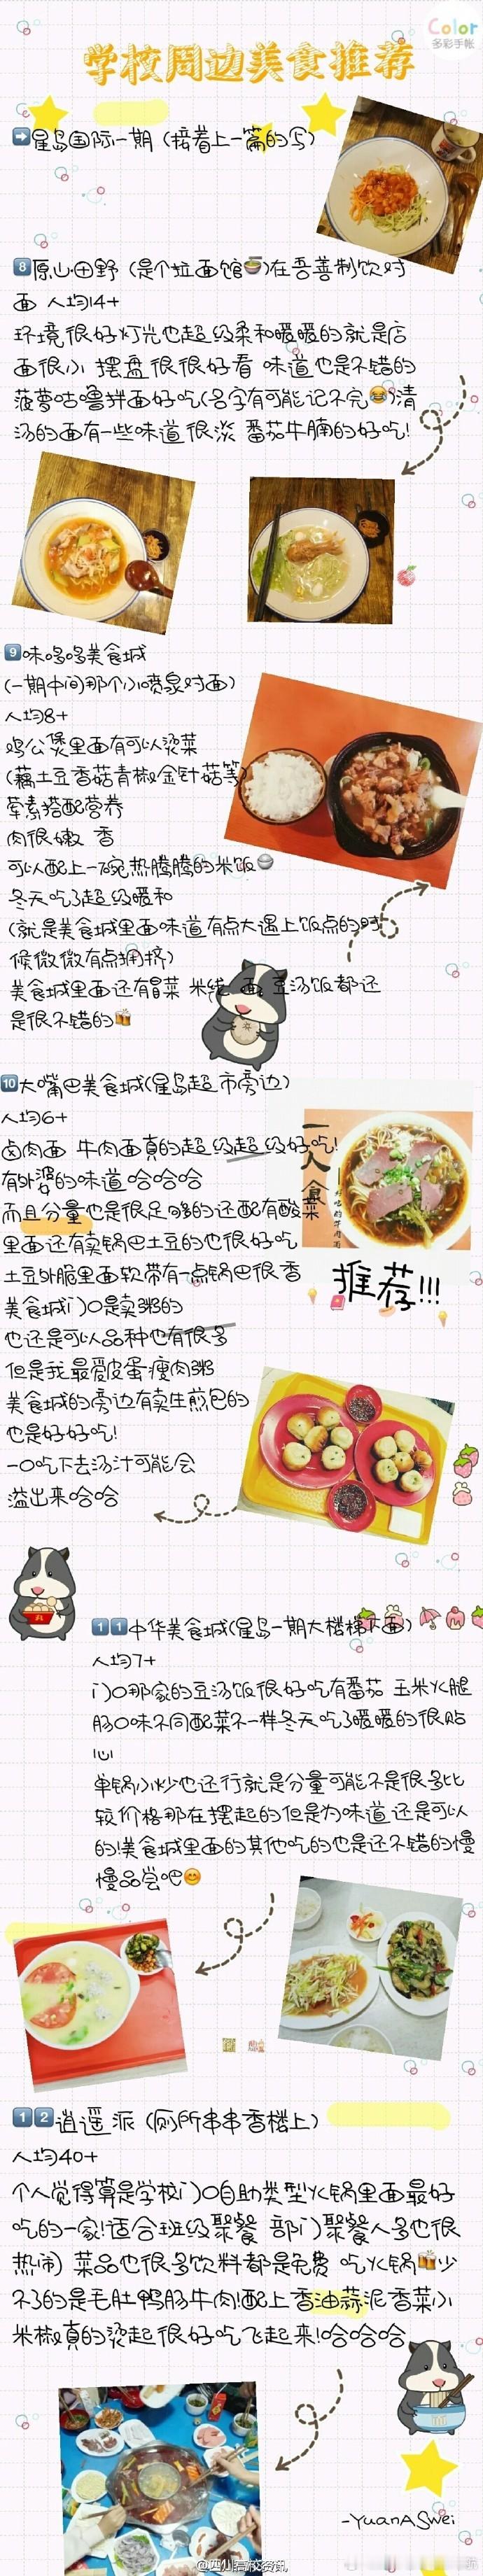 Color
多彩手帐
学校周边美食推荐
➡️星岛国际一期（接着上一篇的写）
8️⃣原山田野（是个拉面馆🍜）在吾善制饮对
面 人均14+
环境很好灯光也超级柔和暖暖的就是店
面很小 摆盘很很好看 味道也是不错的
菠萝咕噜拌面好吃（名字有可能记不完😂）清
汤的面有一些味道很淡 番茄牛腩的好吃!
9️⃣味哆哆美食城
（一期中间那个小喷泉对面）
人均8+
鸡公煲里面有可以烫菜
（藕土豆香菇青椒金针菇等）
荤素搭配营养
肉很嫩 香
可以配上一碗热腾腾的米饭🍚
冬天吃了超级暖和
（就是美食城里面味道有点大遇上饭点的时
候微微有点拥挤）
美食城里面还有冒菜 米线 面 豆汤饭都还
是很不错的🍻
🔟大嘴巴美食城（星岛超市旁边）
人均6+
卤肉面 牛肉面真的超级超级好吃!
有外婆的味道哈哈哈
而且分量也是很足够的还配有酸菜
里面还有卖锅巴土豆的也很好吃
土豆外脆里面软带有一点锅巴很香
美食城门口是卖粥的
也还是可以品种也有很多
但是我最爱皮蛋瘦肉粥
美食城的旁边有卖生煎包的
也是好好吃!
一口吃下去汤汁可能会
溢出来哈哈
一人食
推荐!!!
1️⃣1️⃣中华美食城（星岛一期大楼梯下面）
人均7+
门口那家的豆汤饭很好吃有番茄 玉米火腿
肠口味不同配菜不一样冬天吃了暖暖的很贴
心
单锅小炒也还行就是分量可能不是很多比
较价格那在摆起的但是为味道还是可以
的!美食城里面的其他吃的也是还不错的慢
慢品尝吧😊
1️⃣2️⃣逍遥派（厕所串串香楼上）
人均40+
个人觉得算是学校门口自助类型火锅里面最好
吃的一家!适合班级聚餐 部门聚餐人多也很
热闹）菜品也很多饮料都是免费 吃火锅🍻少
不了的是毛肚鸭肠牛肉!配上香油蒜泥香菜小
米椒真的烫起很好吃飞起来!哈哈哈
-YuanASwei
@四川高校资讯